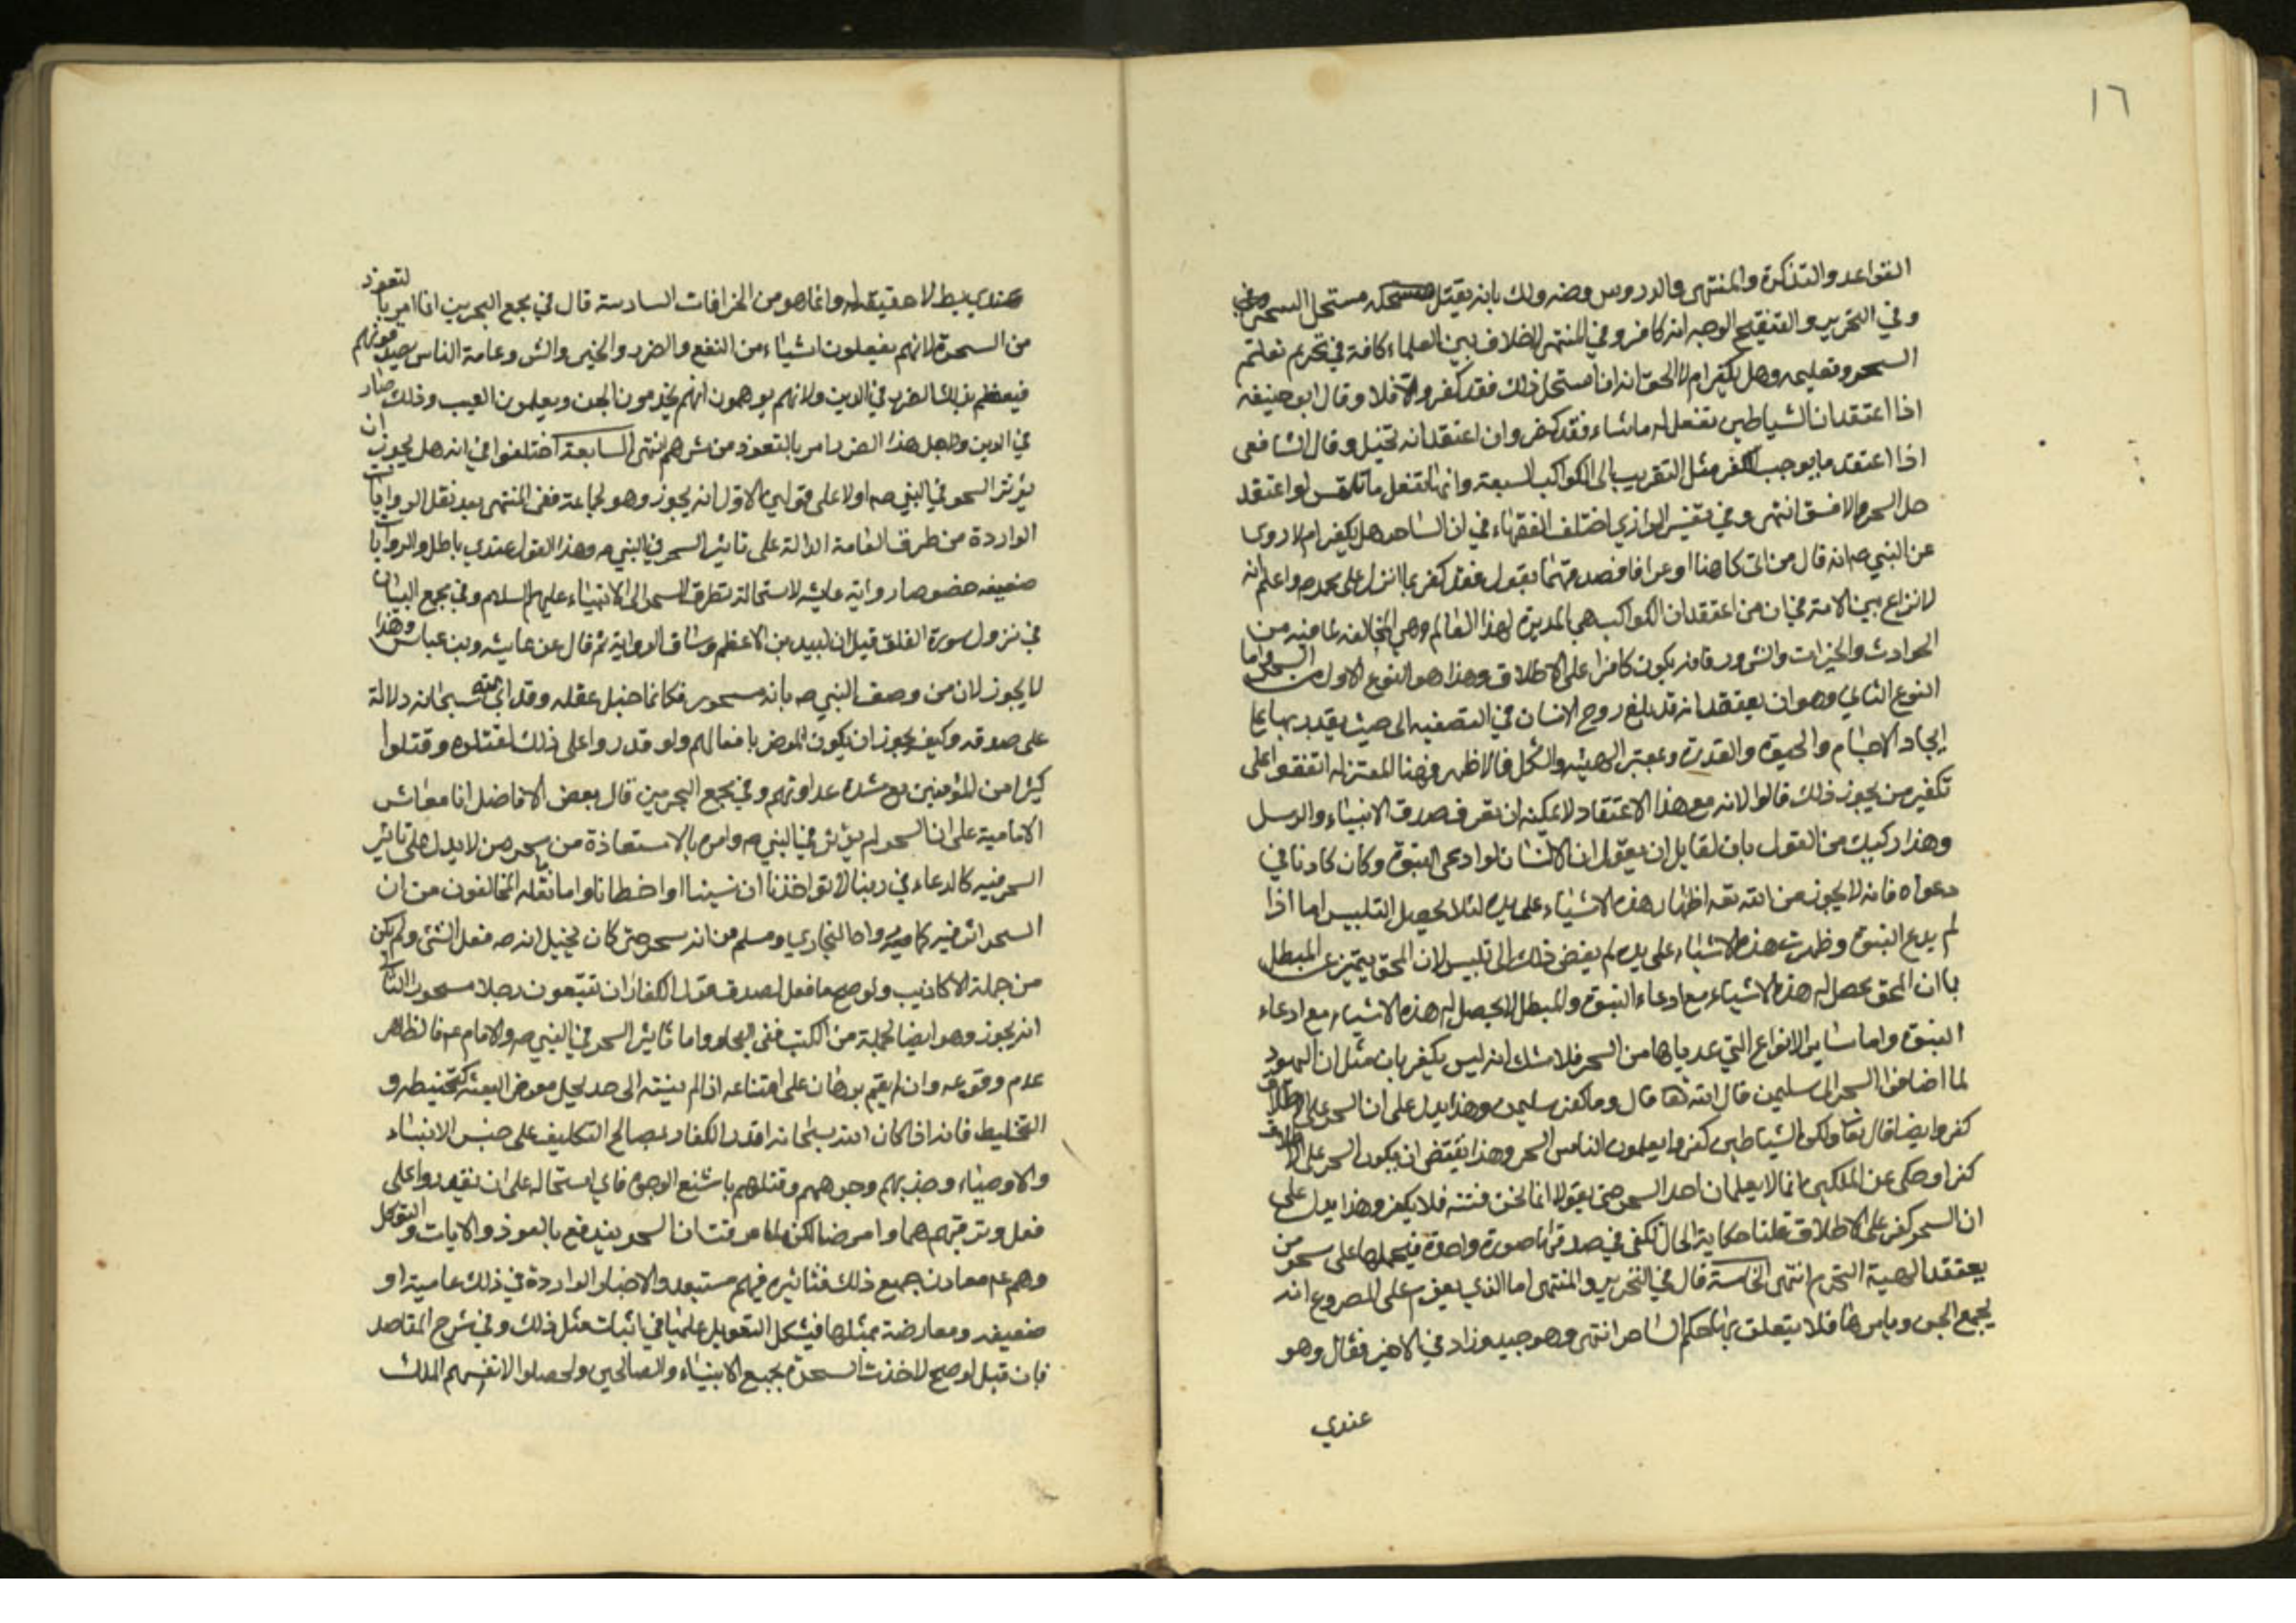 ١٦
القواعد والتذكرة والمنتهى والدروس وضه ولك بانه يقتل مستحله مستحل السحر وفي
وفي التحرير والتنقيح الوجه انه كافر وفي المنتهى لا خلاف بين العلماء كافة في تحريم تعلم
السحر وتعليمه وهل يكفر ام لا الحق انه ان استحل ذلك فقد كفر والا فلا وقال ابو حنيفه
اذا اعتقد ان الشياطين تفعل له ما شاء فقد كفر وان اعتقد انه تخيل وقال الشافعي
اذا اعتقد ما يوجب الكفر مثل التقريب الى الكواكب السبعة وانها تفعل ما تلتمس او اعتقد
حل السحر والا فسق انتهى وفي تفسير الرازي اختلف الفقهاء في ان الساحر هل يكفر ام لا روى
عن النبي ص انه قال من اتى كاهنا او عرافا فصدقهما بقول فقد كفر بما انزل على محمد ص واعلم انه
لا نزاع بين الامة في ان من اعتقد ان الكواكب هي المدبرة لهذا العالم وهي الخالقة لما فيه من
الحوادث والخيرات والشرور فانه يكون كافرا على الاطلاق وهذا هو النوع الاول من السحر واما
النوع الثاني وهو ان يعتقد انه قد يبلغ روح الانسان في التصفيه الى حيث يقدر بها على
ايجاد الاجسام والحيوة والقدرة وتغيير الهيئه والشكل فالاظهر فهنا المعتزله اتفقوا على
تكفير من يجوز ذلك قالوا لانه مع هذا الاعتقاد لا يمكنه ان يعرف صدق الانبياء والرسل
وهذا ركيك من القول بان لقايل ان يقول ان الانسان لو ادعى النبوة وكان كاذبا في
دعواه فانه لا يجوز من الله تعه اظهار هذه الاشياء على يده لئلا يحصل التلبيس اما اذا
لم يدع النبوة وظهرت هذه الاشياء على يده لم يفض ذلك الى تلبيس لان المحق يتميز عن المبطل
بان المحق يحصل له هذه الاشياء مع ادعاء النبوة والمبطل لا يحصل له هذه الاشياء مع ادعاء
النبوة واما سائر الانواع التي عدها من السحر فلا شك انه ليس بكفر بان مثل ان اليهود
لما اضافوا السحر الى سليمن قال الله تعا قال وما كفر سليمن وهذا يدل على ان السحر على الاطلاق
كفر وايضا قال تعا ولكن الشياطين كفروا يعلمون الناس السحر وهذا يقتضي ان يكون السحر على الاطلاق
كفرا وحكى عن الملكين انهما لا يعلمان احدا السحر حتى يقولا انما نحن فتنة فلا تكفر وهذا يدل على
ان السحر كفر على الاطلاق قلنا حكاية الحال تكفي في صدقها صورة واحدة فيحملها على سحر من
يعتقد الهية النجوم انتهى الخامسة قال في التحرير والمنتهى اما الذي يعزم على المصروع انه
يجمع الجن ويامرها فلا يتعلق به حكم الساحر انتهى وهو جيد وزاد في الاخير فقال وهو
عندي
عندي بيط لا حقيقة له وانما هو من الخرافات السادسة قال في مجمع البحرين انما امر بالتعوذ
من السحرة لانهم يفعلون اشياء من النفع والضرر والخير والشر وعامة الناس يصدقونهم
فيعظم بذلك الضرر في الدين ولانهم يوهمون انهم يخدمون الجن ويعلمون الغيب وذلك فساد
في الدين ولاجل هذا الضرر امر بالتعوذ من شرهم انتهى السابعة اختلفوا في انه هل يجوز ان
يؤثر السحر في النبي ص او لا على قولين الاول انه يجوز وهو لجماعة ففي المنتهى بعد نقل الروايات
الواردة من طرف العامة الدالة على تاثير السحر في النبي ص وهذا القول عندي باطل والروايات
ضعيفه خصوصا رواية عايشه لاستحالة تطرق السحر الى الانبياء عليهم السلام وفي مجمع البيان
في نزول سورة الفلق قيل ان لبيد بن الاعظم وساق الرواية ثم قال عن عايشه وبن عباس وهذا
لا يجوز لان من وصف النبي ص بانه مسحور فكانما خبل عقله وقد ابى الله سبحانه دلالة
على صدقه وكيف يجوز ان يكون المرض بافعالهم ولو قدروا على ذلك لقتلوه وقتلوا
كثيرا من المؤمنين مع شدة عداوتهم وفي مجمع البحرين قال بعض الافاضل انا معاشر
الامامية على ان السحر لم يؤثر في النبي ص وامره بالاستعاذة من سحرهن لا يدل على تاثير
السحر فيه كالدعاء في ربنا لا تواخذنا ان نسينا او اخطانا واما ما نقله المخالفون من ان
السحر اثر فيه كما رواه البخاري ومسلم من انه سحر حتى كان يخيل انه ص فعل الشئ ولم يكن
من جملة الاكاذيب ولو صح ما فعل لصدق قول الكفار ان تتبعون رجلا مسحورا الثاني
انه يجوز وهو ايضا لجملة من الكتب ففي البحار واما تاثير السحر في النبي ص والامام ع فالظاهر
عدم وقوعه وان لم يقم برهان على امتناعه اذا لم ينته الى حد يخل بغرض البعثه كتخبيطه و
التخليط فانه اذا كان الله سبحانه اقدر الكفار لمصالح التكليف على حبس الانبياء
والاوصياء وضربهم وجرحهم وقتلهم باشنع الوجوه فاي استحالة على ان يقدروا على
فعل وتر فيهم هما وامرضا لكن لما عرفت ان السحر يندفع بالعوذ والايات والتوكل
وهم ع معادن جميع ذلك فتاثيره فيهم مستبعد والاخبار الواردة في ذلك عامية او
ضعيفه ومعارضة بمثلها فيشكل التعويل عليها في اثبات مثل ذلك وفي شرح المقاصد
فان قيل لو صح لاخذت السحرة بجميع الانبياء والصالحين ولحصلوا لانفسهم الملك